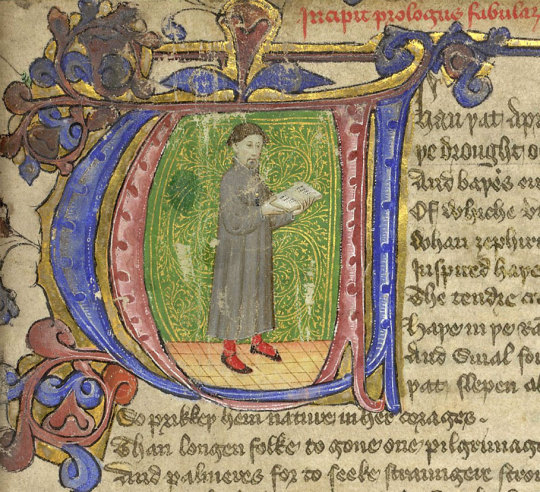 Incipit prologus fabular
Whan þat Apr
þe drought o
And baþes
Of whiche v
Whan zephir
Inspired haþe
The tendre cr
Haþe in þe Ra
And Smal fo
þat slepen al
So prikkeþ hem nature in her corages .
Than longen folke to gone one pilgrimage
And palmeres for to seeke straungere stron